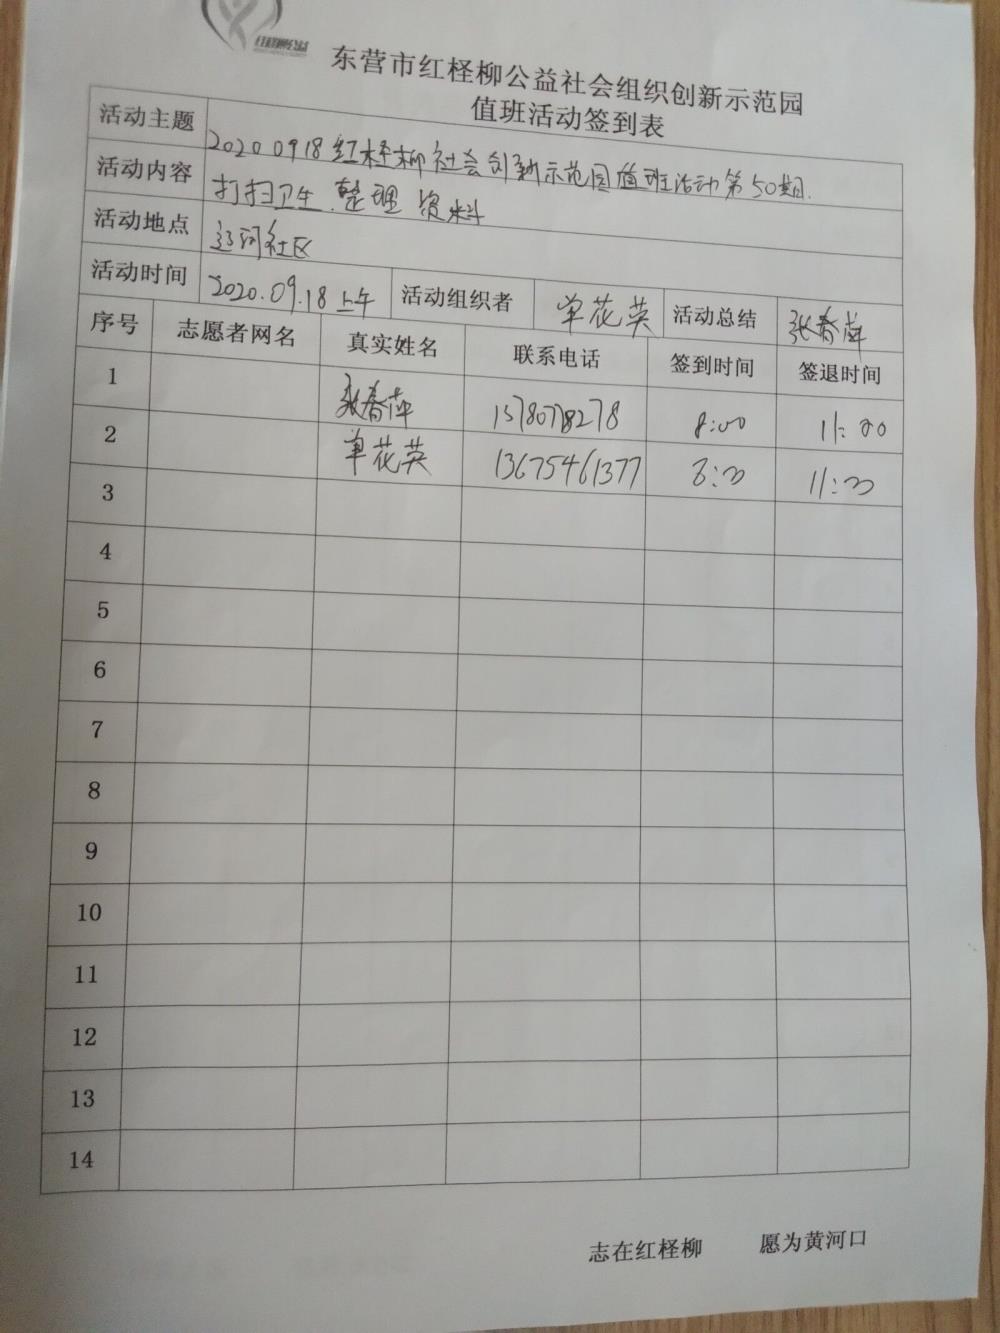 东营市红柽柳公益社会组织创新示范园
值班活动签到表
活动主题 20200918红柽柳社会创新示范园值班活动第50期.
活动内容 打扫卫生.整理资料
活动地点 辽河社区
活动时间 2020.09.18上午 活动组织者 单花英 活动总结 张春萍
序号 志愿者网名 真实姓名 联系电话 签到时间 签退时间
1 张春萍 8:00 11:00
2 单花英 13675461377 8:00 11:00
3
4
5
6
7
8
9
10
11
12
13
14
志在红柽柳 愿为黄河口